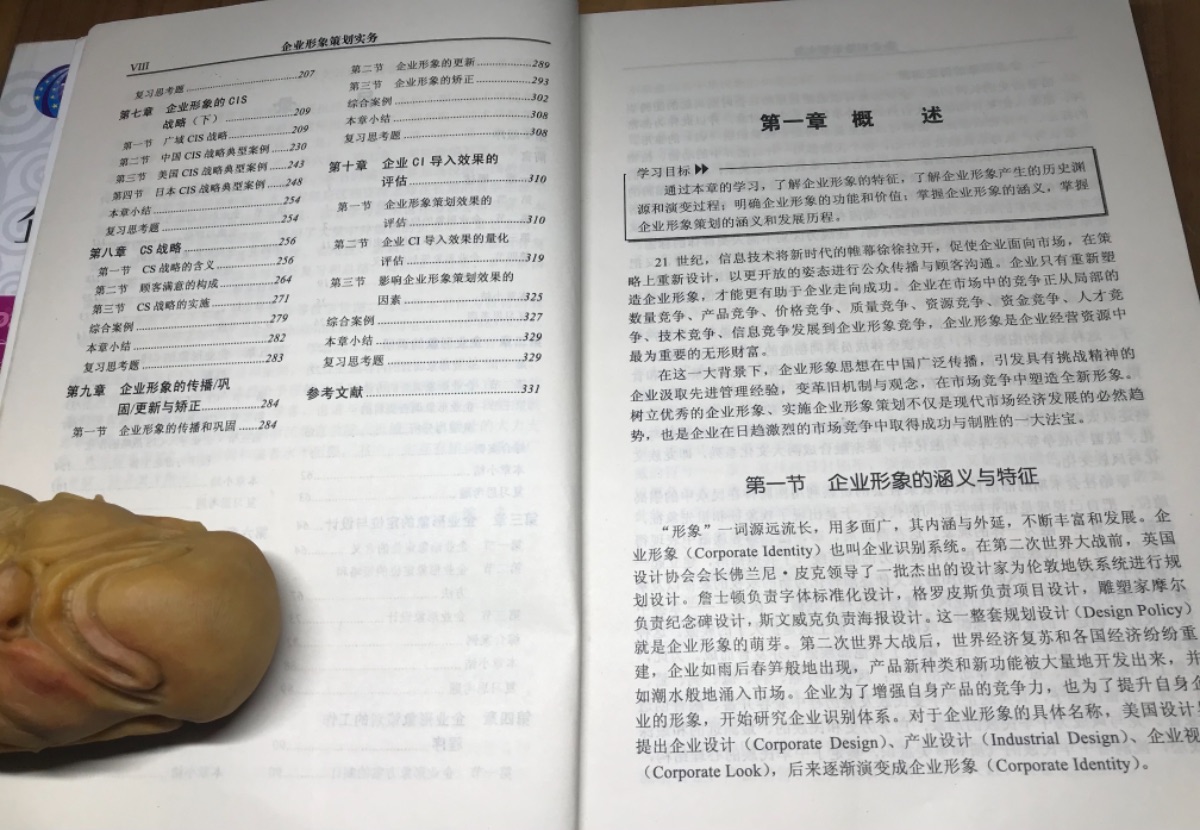 企业形象策划实务
VIII
复习思考题 207
第七章 企业形象的 CIS
战略（下） 209
第一节 广域 CIS 战略 209
第二节 中国 CIS 战略典型案例 230
第三节 美国 CIS 战略典型案例 243
第四节 日本 CIS 战略典型案例 248
本章小结 254
复习思考题 254
第八章 CS 战略 256
第一节 CS 战略的含义 256
第二节 顾客满意的构成 264
第三节 CS 战略的实施 271
综合案例 279
本章小结 282
复习思考题 283
第九章 企业形象的传播/巩
固/更新与矫正 284
第一节 企业形象的传播和巩固 284
第二节 企业形象的更新 289
第三节 企业形象的矫正 293
综合案例 302
本章小结 308
复习思考题 308
第十章 企业 CI 导入效果的
评估 310
第一节 企业形象策划效果的
评估 310
第二节 企业 CI 导入效果的量化
评估 319
第三节 影响企业形象策划效果的
因素 325
综合案例 327
本章小结 329
复习思考题 329
参考文献 331
第一章 概 述
学习目标
通过本章的学习，了解企业形象的特征，了解企业形象产生的历史渊
源和演变过程；明确企业形象的功能和价值；掌握企业形象的涵义，掌握
企业形象策划的涵义和发展历程。
21 世纪，信息技术将新时代的帷幕徐徐拉开，促使企业面向市场，在策
略上重新设计，以更开放的姿态进行公众传播与顾客沟通。企业只有重新塑
造企业形象，才能更有助于企业走向成功。企业在市场中的竞争正从局部的
数量竞争、产品竞争、价格竞争、质量竞争、资源竞争、资金竞争、人才竞
争、技术竞争、信息竞争发展到企业形象竞争，企业形象是企业经营资源中
最为重要的无形财富。
在这一大背景下，企业形象思想在中国广泛传播，引发具有挑战精神的
企业汲取先进管理经验，变革旧机制与观念，在市场竞争中塑造全新形象。
树立优秀的企业形象、实施企业形象策划不仅是现代市场经济发展的必然趋
势，也是企业在日趋激烈的市场竞争中取得成功与制胜的一大法宝。
第一节 企业形象的涵义与特征
“形象”一词源远流长，用多面广，其内涵与外延，不断丰富和发展。企
业形象（Corporate Identity）也叫企业识别系统。在第二次世界大战前，英国
设计协会会长佛兰尼·皮克领导了一批杰出的设计家为伦敦地铁系统进行规
划设计。詹士顿负责字体标准化设计，格罗皮斯负责项目设计，雕塑家摩尔
负责纪念碑设计，斯文威克负责海报设计。这一整套规划设计（Design Policy）
就是企业形象的萌芽。第二次世界大战后，世界经济复苏和各国经济纷纷重
建，企业如雨后春笋般地出现，产品新种类和新功能被大量地开发出来，并
如潮水般地涌入市场。企业为了增强自身产品的竞争力，也为了提升自身企
业的形象，开始研究企业识别体系。对于企业形象的具体名称，美国设计
提出企业设计（Corporate Design）、产业设计（Industrial Design）、企业视
（Corporate Look），后来逐渐演变成企业形象（Corporate Identity）。